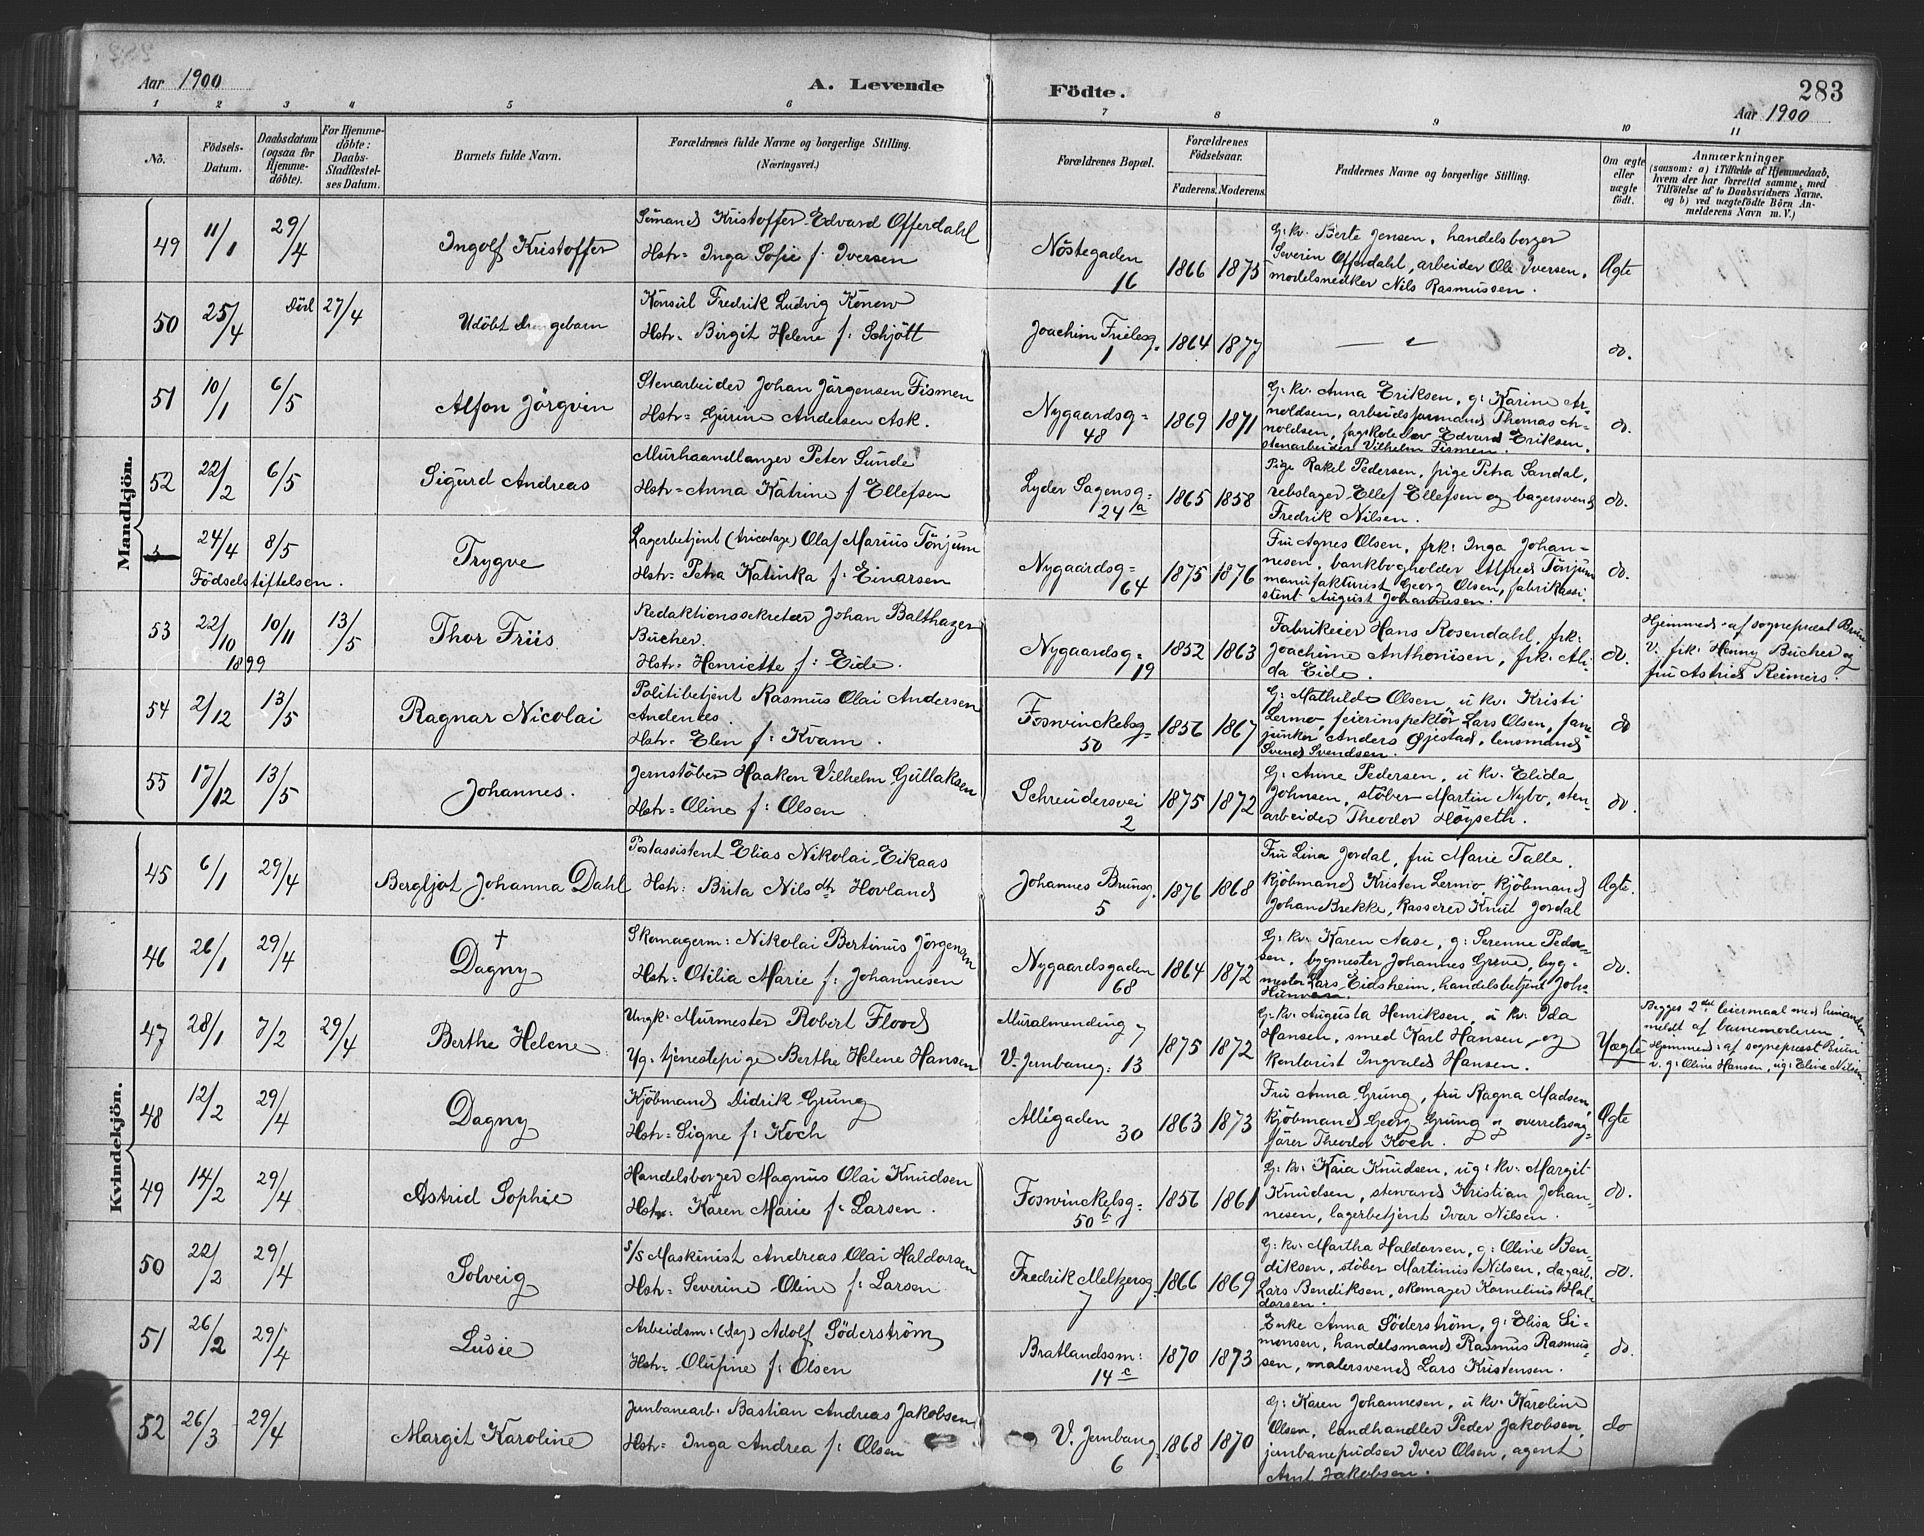 Aar 1900
A. Levende
Födte.
283
Aar 1900
1 2 3 4 5 6 7 8 9 10 11
No.
Födsels-
Datum.
Daabsdatum
(ogsaa for
Hjemme-
döbte).
For Hjemme-
döbte:
Daabs-
Stadfæstel-
ses Datum.
Barnets fulde Navn.
Forældrenes fulde Navne og borgerlige Stilling.
(Næringsvei.)
Forældrenes Bopæl.
Forældrenes
Födselsaar.
Faderens. Moderens.
Faddernes Navne og borgerlige Stilling.
Om ægte
eller
uægte
födt.
Anmærkninger
(saasom: a) i Tilfælde af Hjemmedaab,
hvem der har forrettet samme, med
Tilföielse af to Daabsvidners Navne,
og b) ved uægtefödte Börn An-
melderens Navn m. V.)
Mandkjön.
49 11/1 29/4
Ingolf Kristoffer
Sömand Kristoffer Edvard Offerdahl
Hstr: Inga Sofie f: Iversen
Nöstegaden
16
1866 1875
G: kv. Berte Jensen, handelsborger
Severin Offerdahl, arbeider Ole Iversen,
modelsnedker Nils Rasmussen.
Ægte
50 25/4 död 27/4
Udöbt drengebarn
Konsul Fredrik Ludvig Konow
Hstr: Birgit Helene f: Schjött
Joachim Frielesg.
1
1864 1877
do.
51 10/1 6/5
Alfon Jörgvin
Stenarbeider Johan Jörgensen Fismen
Hstr: Gurine Andersen Ask.
Nygaardsg:
48
1869 1871
G: kv. Anna Eriksen, g: Karine Ar-
noldsen, arbeidsformand Thomas Ar-
noldsen, Edvard Eriksen,
stenarbeider Vilhelm Fismen.
do.
52 22/2 6/5
Sigurd Andreas
Murhaandlanger Peter Sunde
Hstr: Anna Katrine f: Ellefsen
Lyder Sagensg:
24 a
1865 1858
Pige Rakel Pedersen, pige Petra Sandal,
rebslager Ellef Ellefsen og bagersvend
Fredrik Nilsen.
do.
24/4 8/5
Födselstiftelsen.
Trygve
Lagerbetjent (tricotage) Olaf Marius Tönjum
Hstr: Petra Katinka f: Einarsen
Nygaardsg:
64
1875 1876
Fru Agnes Olsen, frk: Inga Johan-
nesen, bankbogholder Alfred Tönjum
manufakturist Georg Olsen, fabrikassi-
stent August Johannesen.
do.
53 22/10 1899 10/11 13/5
Thor Friis
Redaktionssekretær Johan Balthazer
Bucher
Hstr: Henriette f: Eide.
Nygaardsg:
19
1852 1863
Fabrikeier Hans Rosendahl, frk:
Joachime Anthonisen, frk: Ali-
da Eide.
do.
Hjemmed: af sognepræst Bruun
v. frk: Henny Bucher og
fru Astrid Reimers.
54 2/12 13/5
Ragnar Nicolai
Politibetjent Rasmus Olai Andersen
Andenæs.
Hstr: Elen f: Kvam.
Foswinckelsg:
50
1856 1867
G: Mathilde Olsen, u kv. Kristi
Lermo, feierinspektör Lars Olsen, fane-
junker Anders Øjestad, lensmand
Svend Svendsen.
do
55 17/12 13/5
Johannes.
Jernstöber Haakon Vilhelm Gullaksen
Hstr: Oline f: Olsen
Schreudersvei
2
1875 1872
G: Anne Pedersen, u kv. Elida
Johnsen, stöber Martin Nybo, sten-
arbeider Theodor Höyseth.
do.
Kvindekjön.
45 6/1 29/4
Bergljot Johanna Dahl
Postassistent Elias Nikolai Eikaas
Hstr: Brita Nilsdtr Hovland
Johannes Brunsg.
5
1876 1868
Fru Lina Jordal, fru Marie Talle,
kjöbmand Kristen Lermo, kjöbmand
Johan Brekke, kasserer Knut Jordal
Ægte.
46 26/1 29/4
†
Dagny
Skomagerm: Nikolai Bertinus Jörgensen
Hstr: Otilia Marie f: Johannesen
Nygaardsgaden
68
1864 1872
G: kv. Karen Aase, g: Serenne Peder-
sen, bygmester Johannes Greve, byg-
mester Lars Eidsheim, handelsbetjent Johs
do.
47 28/1 7/2 29/4
Berthe Helene
Ungk: Murmester Robert Flood
Pg: tjenestepige Berthe Helene Hansen
Muralmending 7
V. Jernbaneg: 13
1875 1872
G: kv. Augusta Henriksen, u kv. Ida
Hansen, smed Karl Hansen og
kontorist Ingvald Hansen.
Uægte
Begges 2det leiermaal med hinanden,
meldt af barnemoderen.
Hjemmed: af sognepræst Bruun
v. g: Oline Hansen, ug: Eline Nilsen.
48 12/2 29/4
Dagny
Kjöbmand Didrik Grung
Hstr: Signe f: Koch
Allégaden
30
1863 1873
Fru Anna Grung, fru Ragna Madsen,
kjöbmand Georg Grung og overretssag-
förer Theodor Koch.
Ægte
49 14/2 29/4
Astrid Sophie
Handelsborger Magnus Olai Knudsen
Hstr: Karen Marie f: Larsen.
Foswinckelsg:
50 b
1856 1861
G: kv. Kaia Knudsen, ug: kv. Margit
Knudsen, steward Kristian Johan-
nesen, lagerbetjent Ivar Nilsen.
do.
50 22/2 29/4
Solveig
S/S Maskinist Andreas Olai Haldorsen
Hstr: Severine Oline f: Larsen
Fredrik Meltzersg.
7
1866 1869
G: kv. Martha Haldorsen, g: Oline Ben-
diksen, stöber Martinus Nilsen, dagarb.
Lars Bendiksen, skomager Kornelius Hal-
dorsen.
do.
51 26/2 29/4
Lusie
Arbeidsm: (dag) Adolf Söderström
Hstr: Olufine f: Olsen
Bratlandssm:
14 c
1870 1873
Enke Anna Söderström, g: Elisa Si-
monsen, handelsmand Rasmus Rasmus-
sen, malersvend Lars Kristensen.
do.
52 26/3 29/4
Margit Karoline
Jernbanearb. Bastian Andreas Jakobsen
Hstr: Inga Andrea f: Olsen
V. Jernbaneg.
6
1868 1870
G: Karen Johannesen, u kv. Karoline
Olsen, landhandler Peder Jakobsen,
jernbanepudser Iver Olsen, agent
Arnt Jakobsen.
do